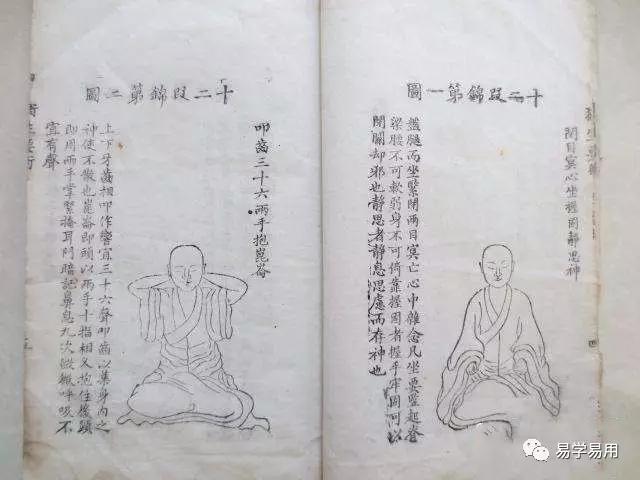 衛生要術
四
閉目冥心坐握固静思神
十二段錦第一圖
盤腿而坐緊閉兩目冥亡心中雜念凡坐要豎起脊
梁腰不可軟弱身不可倚靠握固者握手牢固可以
閉關却邪也静思者静息思慮而存神也
十二段錦第二圖
叩齒三十六兩手抱崑崙
上下牙齒相叩作響宜三十六聲叩齒以集身内之
神使不散也崑崙即頭以兩手十指相叉抱住後頸
即用兩手掌緊掩耳門暗記鼻息九次微微呼吸不
宜有聲
衛生要術
易学易用